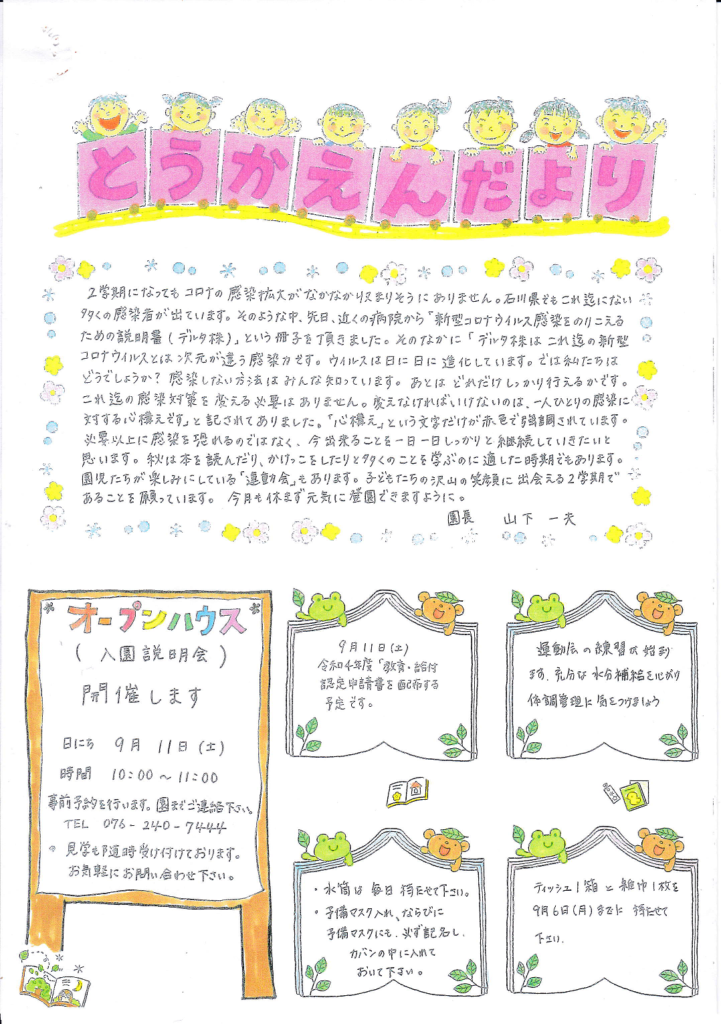 とうかえんだより
2学期になってもコロナの感染拡大がなかなかおさまりそうにありません。石川県でもこれ迄にない
多くの感染者が出ています。そのような中、先日、近くの病院から「新型コロナウイルス感染をのりこえる
ための説明書(デルタ株)」という冊子を頂きました。そのなかに「デルタ株はこれ迄の新型
コロナウイルスとは次元が違う感染力です。ウイルスは日に日に進化しています。では私たちは
どうでしょうか?感染しない方法はみんな知っています。あとはどれだけしっかり行えるかです。
これ迄の感染対策を変える必要はありません。変えなければいけないのは、一人ひとりの感染に
対する心構えです」と記されてありました。「心構え」という文字だけが赤色で強調されています。
必要以上に感染を恐れるのではなく、今出来ることを一日一日しっかりと継続していきたいと
思います。秋は本を読んだり、かけっこをしたりと多くのことを学ぶのに適した時期でもあります。
園児たちが楽しみにしている「運動会」もあります。子どもたちの沢山の笑顔に出会える2学期で
あることを願っています。今月も休まず元気に登園できますように。
園長 山下 一夫
オープンハウス
(入園説明会)
開催します
日にち 9月11日(土)
時間 10:00〜11:00
事前予約を行います。園までご連絡下さい。
TEL 076-240-7444
・見学も随時受け付けております。
お気軽にお問い合わせ下さい。
9月11日(土)
令和4年度「教育・給付
認定申請書を配布する
予定です。
運動会の練習が始まり
ます。充分な水分補給を心がけ
体調管理に気をつけましょう
・水筒は毎日持たせて下さい。
・予備マスク入れ、ならびに
予備マスクにも、必ず記名し、
カバンの中に入れて
おいて下さい。
ティッシュ1箱と雑巾1枚を
9月6日(月)までに持たせて
下さい。